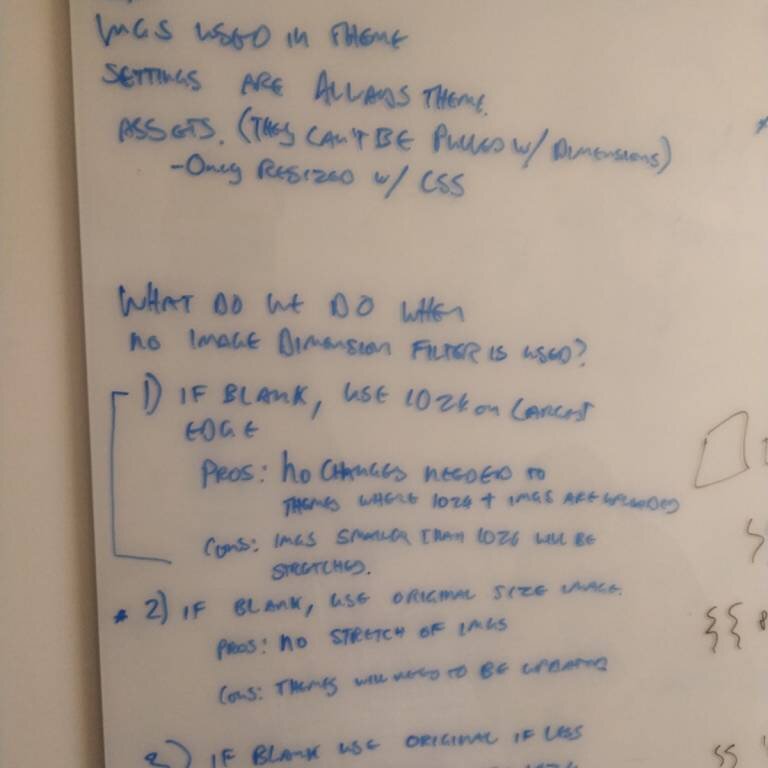 IMGS USED IN THEME
SETTINGS ARE ALWAYS THEME
ASSETS. (THEY CAN'T BE PULLED W/ DIMENSIONS)
- ONLY RESIZED W/ CSS
WHAT DO WE DO WHEN
NO IMAGE DIMENSION FILTER IS USED?
1) IF BLANK, USE 1024 ON LARGEST
EDGE
PROS: NO CHANGES NEEDED TO
THEMES WHERE 1024 + IMGS ARE UPLOADED
CONS: IMGS SMALLER THAN 1024 WILL BE
STRETCHED.
* 2) IF BLANK, USE ORIGINAL SIZE IMAGE.
PROS: NO STRETCH OF IMGS
CONS: THEMES WILL NEED TO BE UPDATED
3) IF BLANK USE ORIGINAL IF LESS
{{